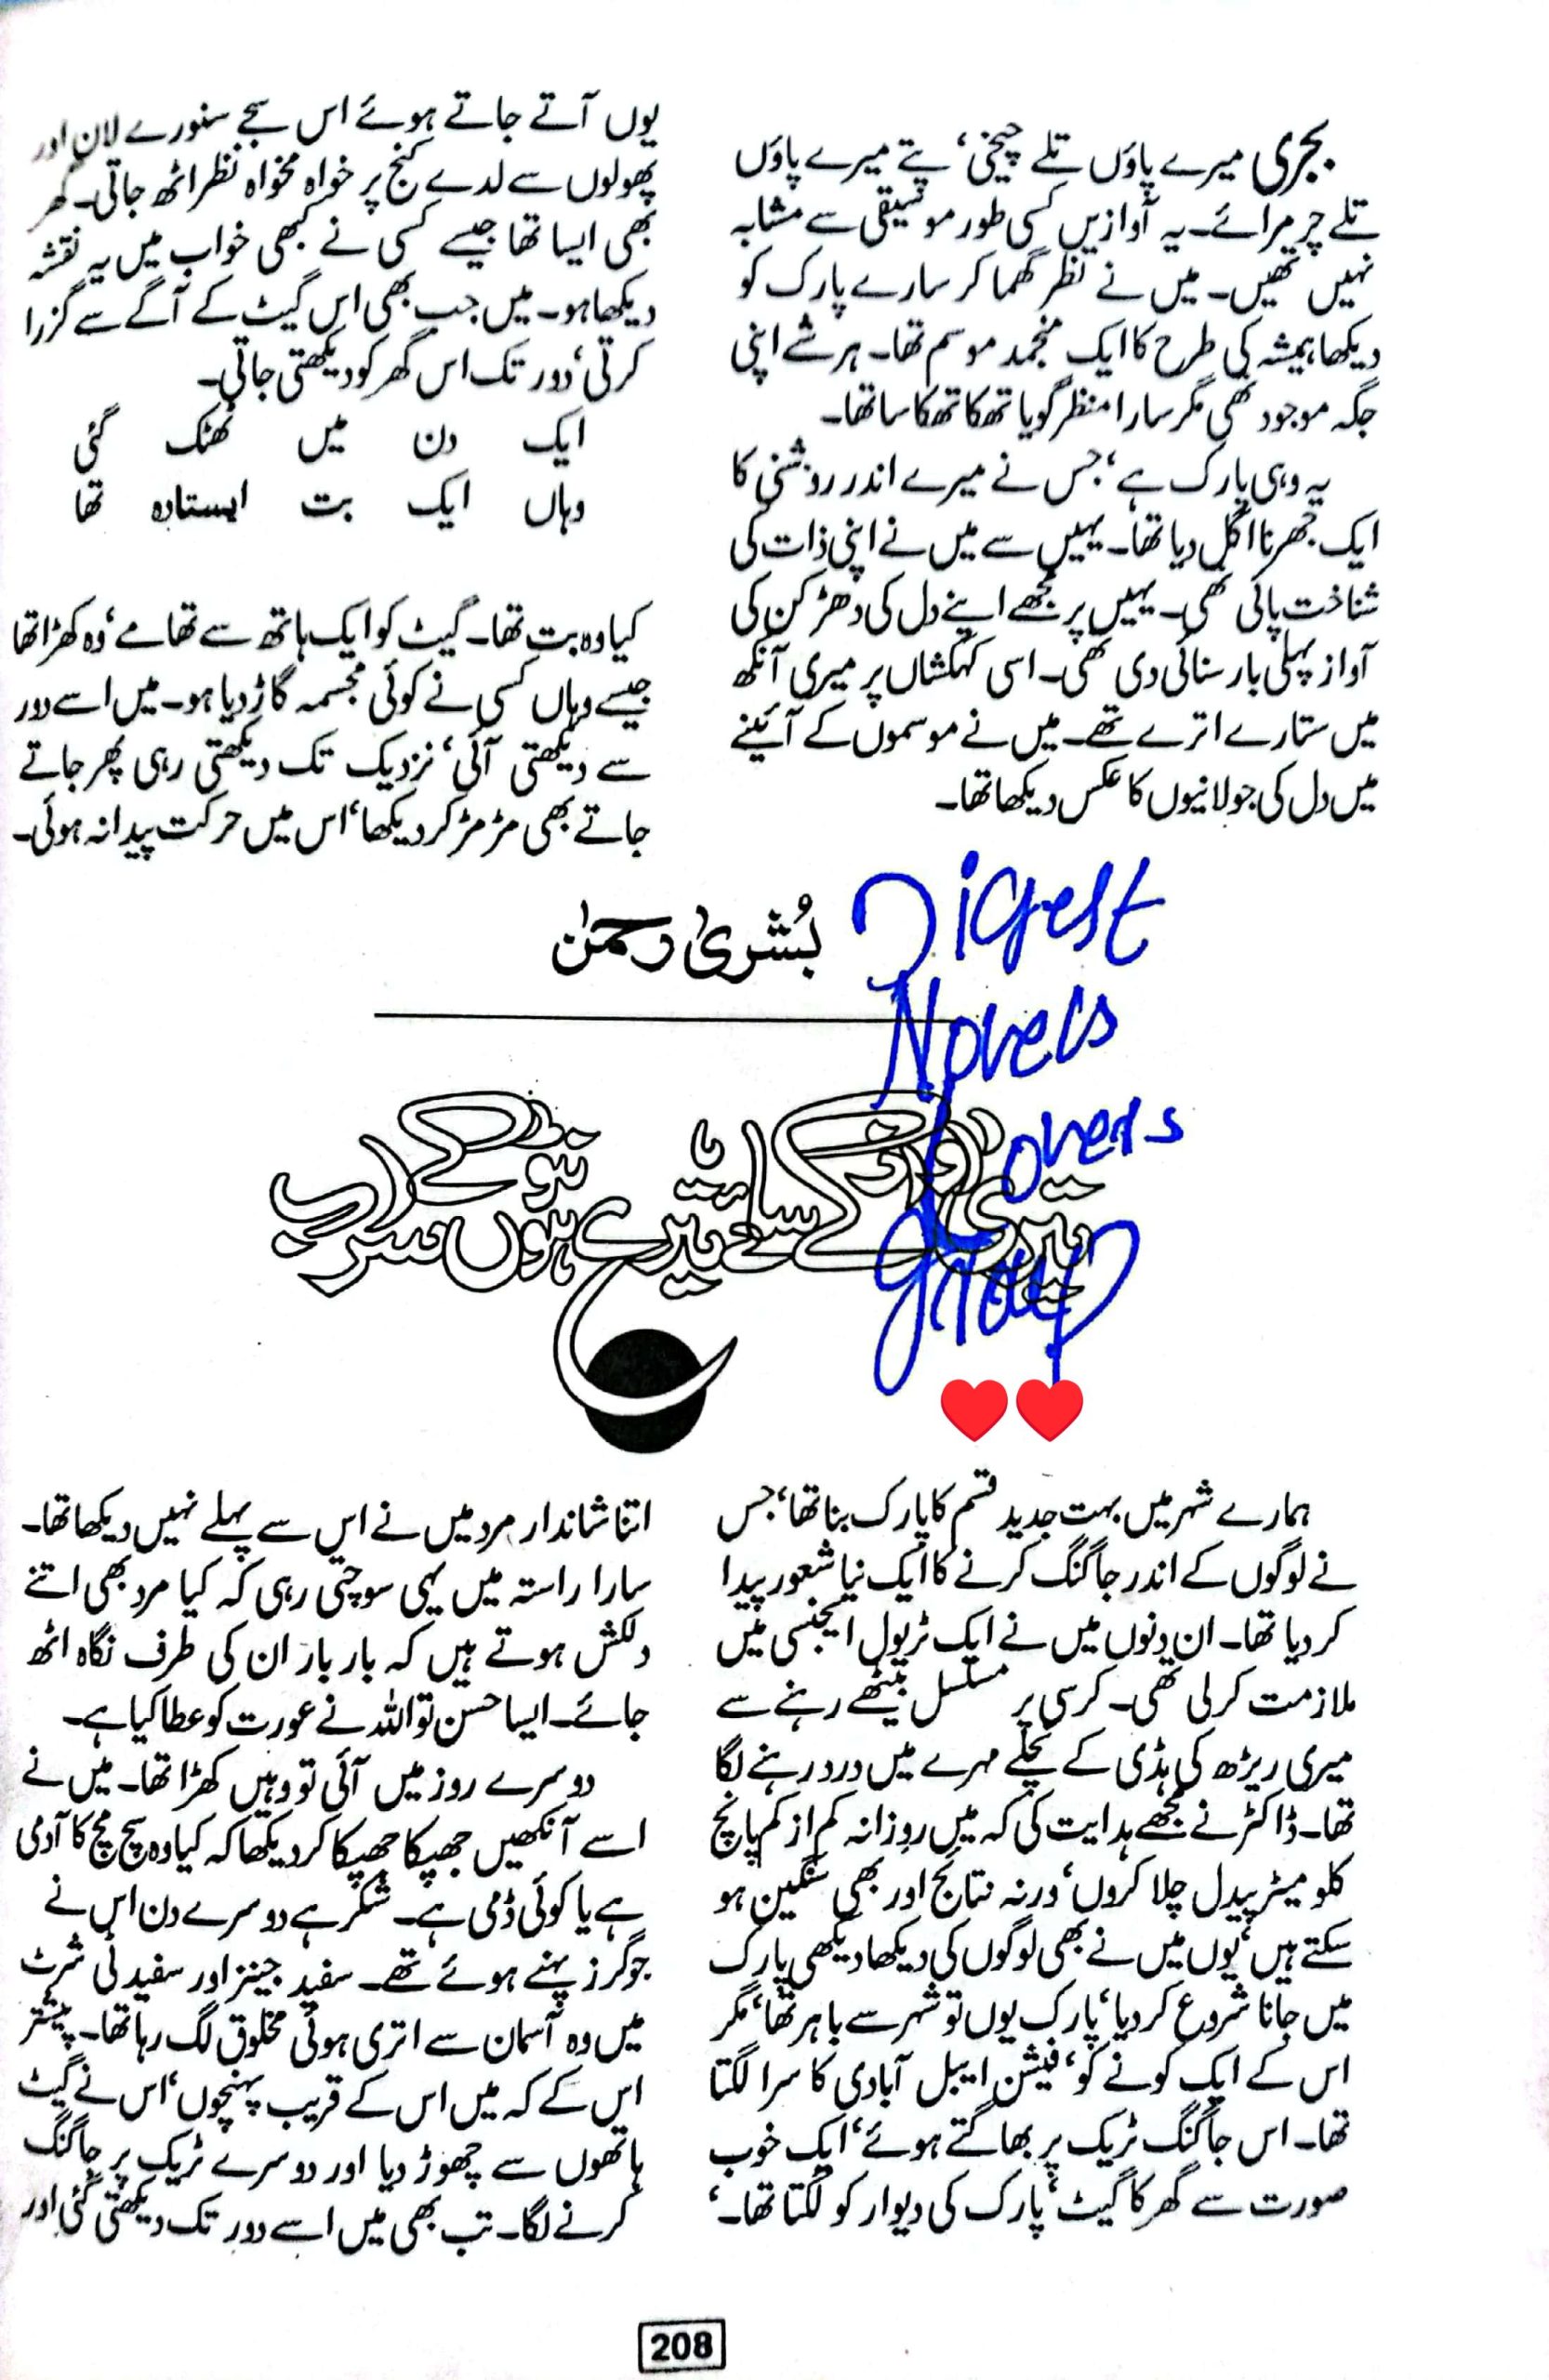 بجری میرے پاؤں تلے چیخی، پتے میرے پاؤں
تلے چرمرائے۔ یہ آوازیں کسی طور موسیقی سے مشابہ
نہیں تھیں۔ میں نے نظر گھما کر سارے پارک کو
دیکھا ہمیشہ کی طرح کا ایک منجمد موسم تھا۔ ہر شے اپنی
جگہ موجود تھی مگر سارا منظر گویا تھکا تھکا سا تھا۔
یہ وہی پارک ہے، جس نے میرے اندر روشنی کا
ایک جھرنا اگل دیا تھا۔ یہیں سے میں نے اپنی ذات کی
شناخت پائی تھی۔ یہیں پر مجھے اپنے دل کی دھڑکن کی
آواز پہلی بار سنائی دی تھی۔ اسی کہکشاں پر میری آنکھ
میں ستارے اترے تھے۔ میں نے موسموں کے آئینے
میں دل کی جولانیوں کا عکس دیکھا تھا۔
یوں آتے جاتے ہوئے اس سجے سنورے لان اور
پھولوں سے لدے کنج پر خواہ مخواہ نظر اٹھ جاتی۔ گھر
بھی ایسا تھا جیسے کسی نے کبھی خواب میں یہ نقشہ
دیکھا ہو۔ میں جب بھی اس گیٹ کے آگے سے گزرا
کرتی، دور تک اس گھر کو دیکھتی جاتی۔
ایک دن میں ٹھنک گئی
وہاں ایک بت ایستادہ تھا
کیا وہ بت تھا۔ گیٹ کو ایک ہاتھ سے تھامے، وہ کھڑا تھا
جیسے وہاں کسی نے کوئی مجسمہ گاڑ دیا ہو۔ میں اسے دور
سے دیکھتی آئی، نزدیک تک دیکھتی رہی پھر جاتے
جاتے بھی مڑ مڑ کر دیکھا، اس میں حرکت پیدا نہ ہوئی۔
بُشریٰ رحمٰن
Digest
Novels
Lovers
group
❤❤
تیری آواز کے سائے تیرے ہونٹوں کے سراب
ہمارے شہر میں بہت جدید قسم کا پارک بنا تھا، جس
نے لوگوں کے اندر جاگنگ کرنے کا ایک نیا شعور پیدا
کر دیا تھا۔ ان دنوں میں نے ایک ٹریول ایجنسی میں
ملازمت کر لی تھی۔ کرسی پر مسلسل بیٹھے رہنے سے
میری ریڑھ کی ہڈی کے نچلے مہرے میں درد رہنے لگا
تھا۔ ڈاکٹر نے مجھے ہدایت کی کہ میں روزانہ کم از کم پانچ
کلو میٹر پیدل چلا کروں، ورنہ نتائج اور بھی سنگین ہو
سکتے ہیں، یوں میں نے بھی لوگوں کی دیکھا دیکھی پارک
میں جانا شروع کر دیا، پارک یوں تو شہر سے باہر تھا، مگر
اس کے ایک کونے کو، فیشن ایبل آبادی کا سرا لگتا
تھا۔ اس جاگنگ ٹریک پر بھاگتے ہوئے، ایک خوب
صورت سے گھر کا گیٹ، پارک کی دیوار کو لگتا تھا۔،
اتنا شاندار مرد میں نے اس سے پہلے نہیں دیکھا تھا۔
سارا راستہ میں یہی سوچتی رہی کہ کیا مرد بھی اتنے
دلکش ہوتے ہیں کہ بار بار ان کی طرف نگاہ اٹھ
جائے۔ ایسا حسن تو اللہ نے عورت کو عطا کیا ہے۔
دوسرے روز میں آئی تو وہیں کھڑا تھا۔ میں نے
اسے آنکھیں جھپکا جھپکا کر دیکھا کہ کیا وہ سچ مچ کا آدمی
ہے یا کوئی ڈمی ہے۔ شکر ہے دوسرے دن اس نے
جوگرز پہنے ہوئے تھے۔ سفید جینز اور سفید ٹی شرٹ
میں وہ آسمان سے اتری ہوئی مخلوق لگ رہا تھا۔ پیشتر
اس کے کہ میں اس کے قریب پہنچوں، اس نے گیٹ
ہاتھوں سے چھوڑ دیا اور دوسرے ٹریک پر جاگنگ
کرنے لگا۔ تب بھی میں اسے دور تک دیکھتی گئی اور
208